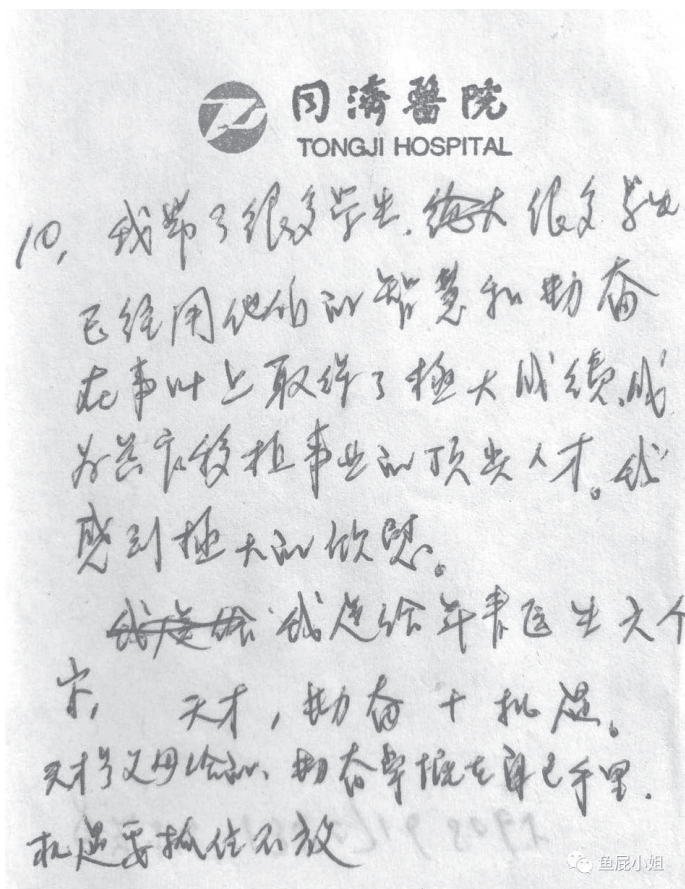 同濟醫院
TONGJI HOSPITAL
10, 我带了很多学生、很多学生
已经用他们的智慧和勤奋
在事业上取得了極大成绩、成
为器官移植事业的顶尖人才。我
感到極大的欣慰。
我送给 我送给年青医生六个
字, 天才,勤奋十机遇。
天才是父母给的、勤奋掌握在自己手里.
机遇要抓住不放
鱼屁小姐